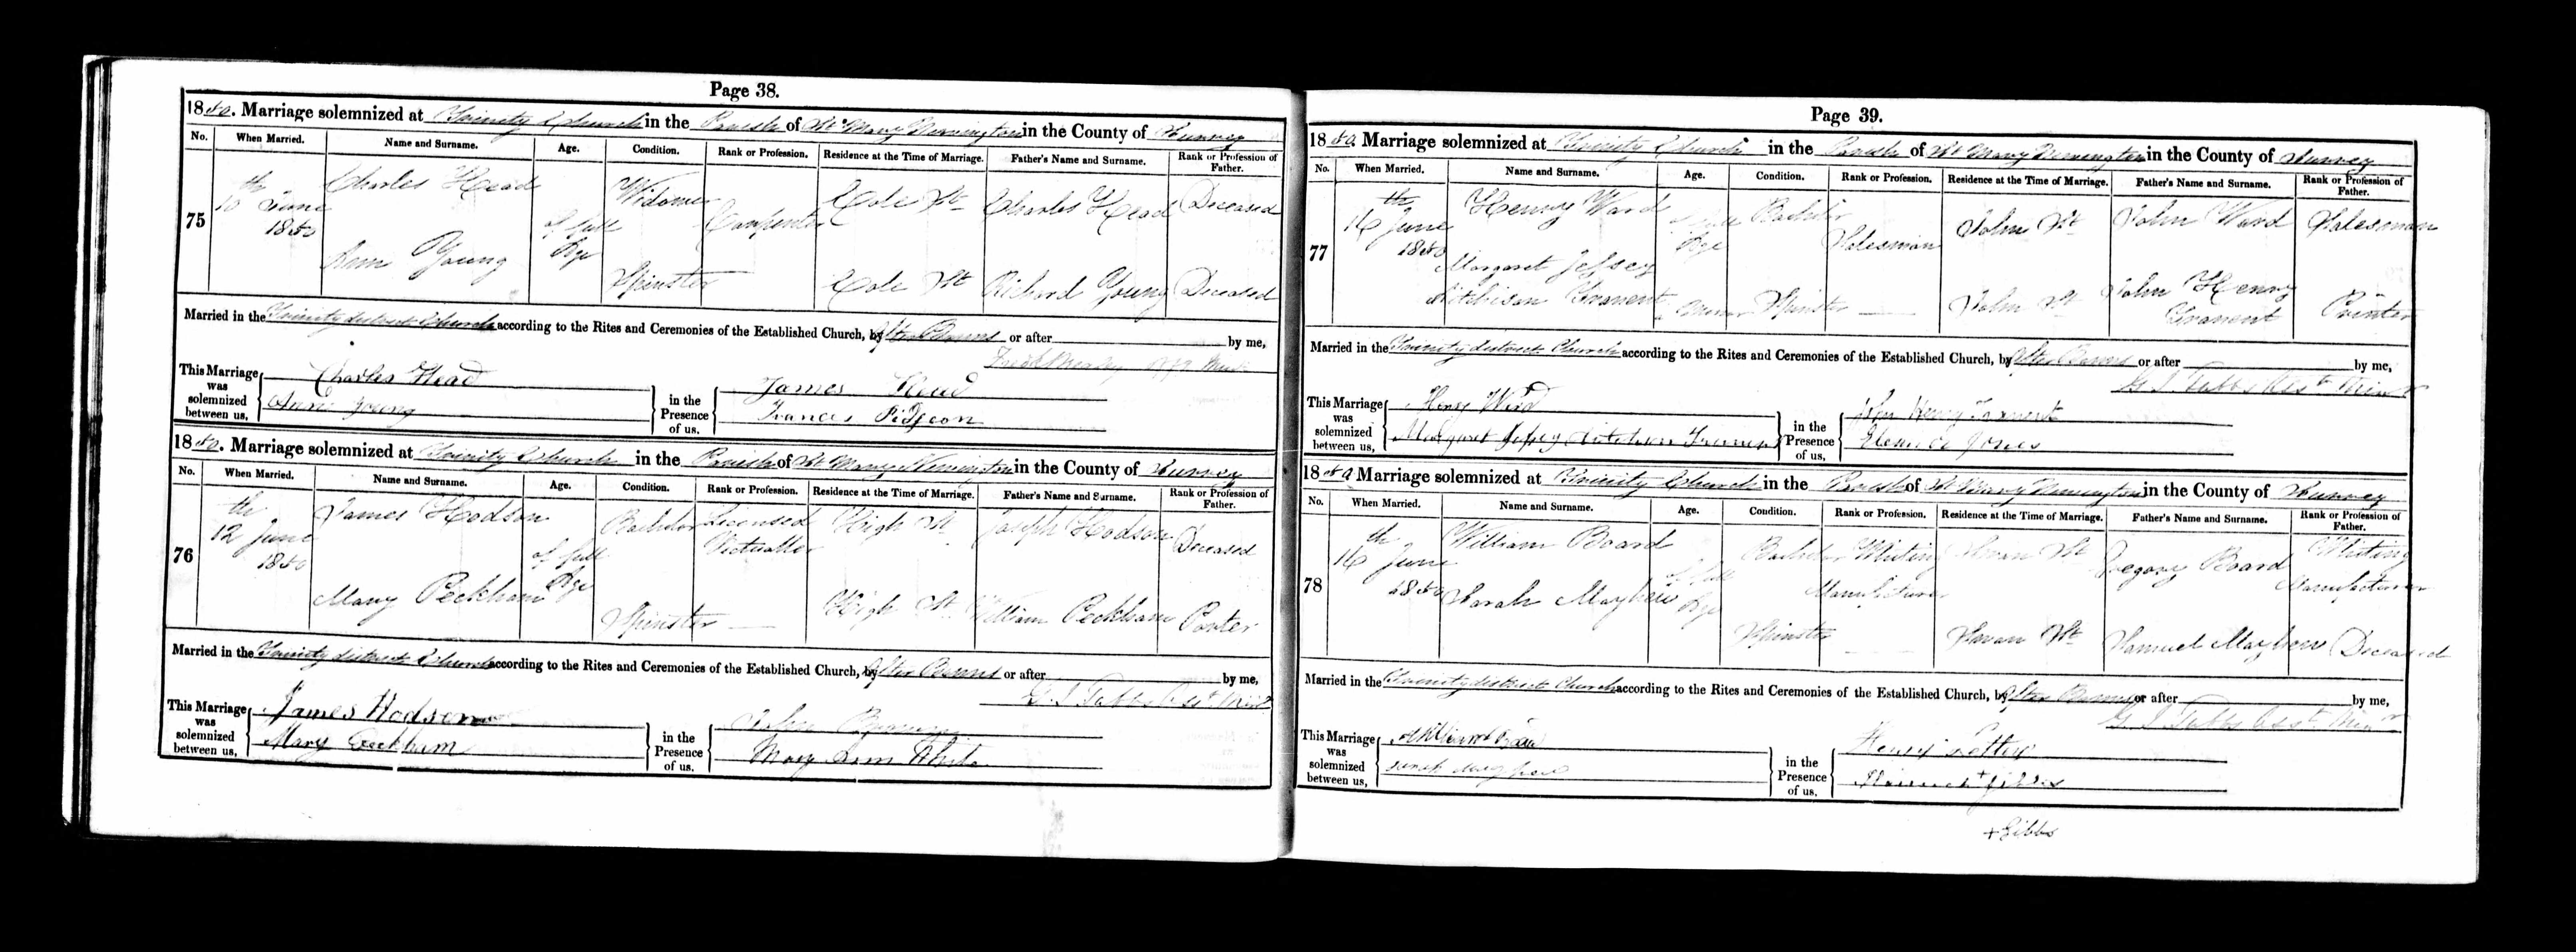 Page 38.
1850. Marriage solemnized at Trinity Church in the Parish of St Mary Newington in the County of Surrey
No. When Married. Name and Surname. Age. Condition. Rank or Profession. Residence at the Time of Marriage. Father's Name and Surname. Rank or Profession of Father.
75 10th June 1850 Charles Head of full Age Widower Carpenter Cole St Charles Head Deceased
Ann Young Spinster Cole St Richard Young Deceased
Married in the Trinity district Church according to the Rites and Ceremonies of the Established Church, by after Banns or after by me,
This Marriage was solemnized between us, Charles Head in the Presence of us. James Head
Ann Young Frances Pidgeon
1850. Marriage solemnized at Trinity Church in the Parish of St Mary Newington in the County of Surrey
No. When Married. Name and Surname. Age. Condition. Rank or Profession. Residence at the Time of Marriage. Father's Name and Surname. Rank or Profession of Father.
76 12th June 1850 James Hodson of full Age Bachelor Licensed Victualler High St Joseph Hodson Deceased
Mary Peckham Spinster — High St William Peckham Porter
Married in the Trinity district Church according to the Rites and Ceremonies of the Established Church, by after Banns or after by me,
G. S. Tubbs Asst Minr
This Marriage was solemnized between us, James Hodson in the Presence of us. John
Mary Peckham Mary Ann White
Page 39.
1850. Marriage solemnized at Trinity Church in the Parish of St Mary Newington in the County of Surrey
No. When Married. Name and Surname. Age. Condition. Rank or Profession. Residence at the Time of Marriage. Father's Name and Surname. Rank or Profession of Father.
77 16th June 1850 Henry Ward of full Age Bachelor Salesman John St John Ward Salesman
Margaret Jeffsey Aitchison Tranent Minor Spinster — John St John Henry Tranent Painter
Married in the Trinity district Church according to the Rites and Ceremonies of the Established Church, by after Banns or after by me,
G. S. Tubbs Asst Minr
This Marriage was solemnized between us, Henry Ward in the Presence of us, John Henry Tranent
Margaret Jefsey Aitchison Tranent Jones
1850 Marriage solemnized at Trinity Church in the Parish of St Mary Newington in the County of Surrey
No. When Married. Name and Surname. Age. Condition. Rank or Profession. Residence at the Time of Marriage. Father's Name and Surname. Rank or Profession of Father.
78 16th June 1850 William Board of full Age Bachelor Whiting Manufacturer Swan St Gregory Board Whiting Manufacturer
Sarah Mayhew Spinster — Swan St Samuel Mayhew Deceased
Married in the Trinity district Church according to the Rites and Ceremonies of the Established Church, by after Banns or after by me,
G. S. Tubbs Asst Minr
This Marriage was solemnized between us, William Board in the Presence of us. Henry
Sarah Mayhew Gibbs
+ Gibbs